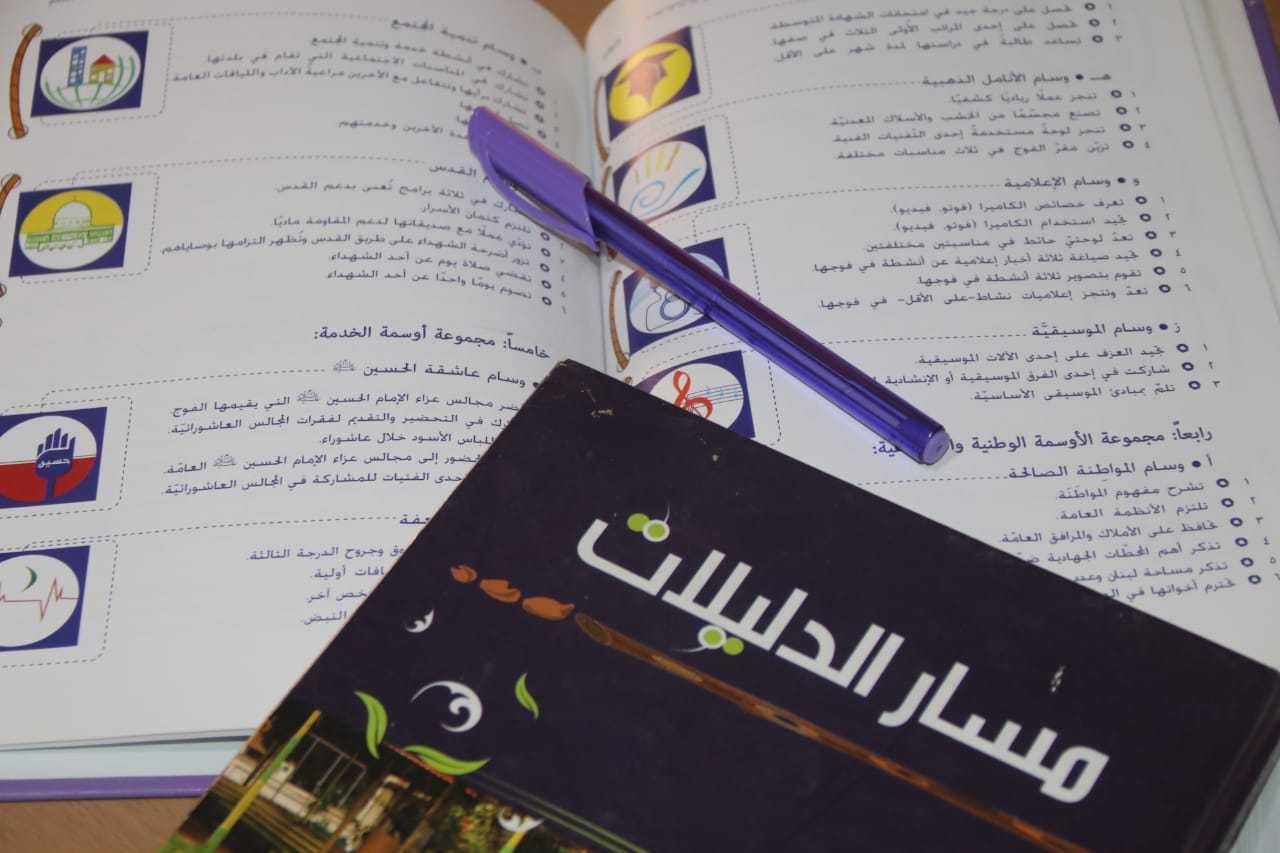 تحصل على درجة جيد في امتحانات الشهادة المتوسطة
٢ تحصل على إحدى المراتب الأولى الثلاث في صفها.
٣ تساعد طالبة في دراستها لمدة شهر على الأقل.
هـ • وسام الأنامل الذهبية
١ تنجز عملًا رياديًا كشفيًا.
٢ تصنع مجسّمًا من الخشب والأسلاك المعدنيّة.
٣ تنجز لوحةً مستخدمةً إحدى التقنيات الفنية.
٤ تزيّن مقرّ الفوج في ثلاث مناسبات مختلفة.
و • وسام الإعلامية
١ تعرف خصائص الكاميرا (فوتو، فيديو).
٢ تجيد استخدام الكاميرا (فوتو، فيديو).
٣ تعدّ لوحتيّ حائط في مناسبتين مختلفتين.
٤ تجيد صياغة ثلاثة أخبار إعلامية عن أنشطة في فوجها.
٥ تقوم بتصوير ثلاثة أنشطة في فوجها.
٦ تعدّ وتنجز إعلاميات نشاط-على الأقل- في فوجها.
ز • وسام الموسيقيَّة
١ تجيد العزف على إحدى الآلات الموسيقية.
٢ شاركت في إحدى الفرق الموسيقية أو الإنشادية
٣ تلمّ بمبادئ الموسيقى الأساسيّة.
رابعاً: مجموعة الأوسمة الوطنية
أ • وسام المواطِنة الصالحة
١ تشرح مفهوم المواطَنَة.
٢ تلتزم الأنظمة العامة.
٣ تحافظ على الأملاك والمرافق العامّة.
٤ تذكر أهم المحطّات الجهادية
٥ تذكر مساحة لبنان وعدد
٦ تحترم أخواتها في
ب • وسام تنمية المجتمع
١ تشارك في أنشطة خدمة وتنمية المجتمع
تشارك في المناسبات الاجتماعية التي تقام في بلدتها.
تشارك برأيها وتتفاعل مع الآخرين مراعية الآداب واللياقات العامة.
الآخرين وخدمتهم.
القدس
تشارك في ثلاثة برامج تُعنى بدعم القدس
تلتزم كتمان الأسرار.
تؤدي عملًا مع صديقاتها لدعم المقاومة ماديًا.
تزور أضرحة الشهداء على طريق القدس وتُظهر التزامها بوصاياهم.
تقضي صلاة يوم عن أحد الشهداء.
تصوم يومًا واحدًا عن أحد الشهداء.
خامساً: مجموعة أوسمة الخدمة:
• وسام عاشقة الحسين
مجالس عزاء الإمام الحسين التي يقيمها الفوج.
في التحضير والتقديم لفقرات المجالس العاشورائيّة.
اللباس الأسود خلال عاشوراء.
الحضور إلى مجالس عزاء الإمام الحسين العامّة.
إحدى الفتيات للمشاركة في المجالس العاشورائيّة.
وجروح الدرجة الثالثة.
أولية.
آخر.
النبض.
حسين
مسار الدليلات